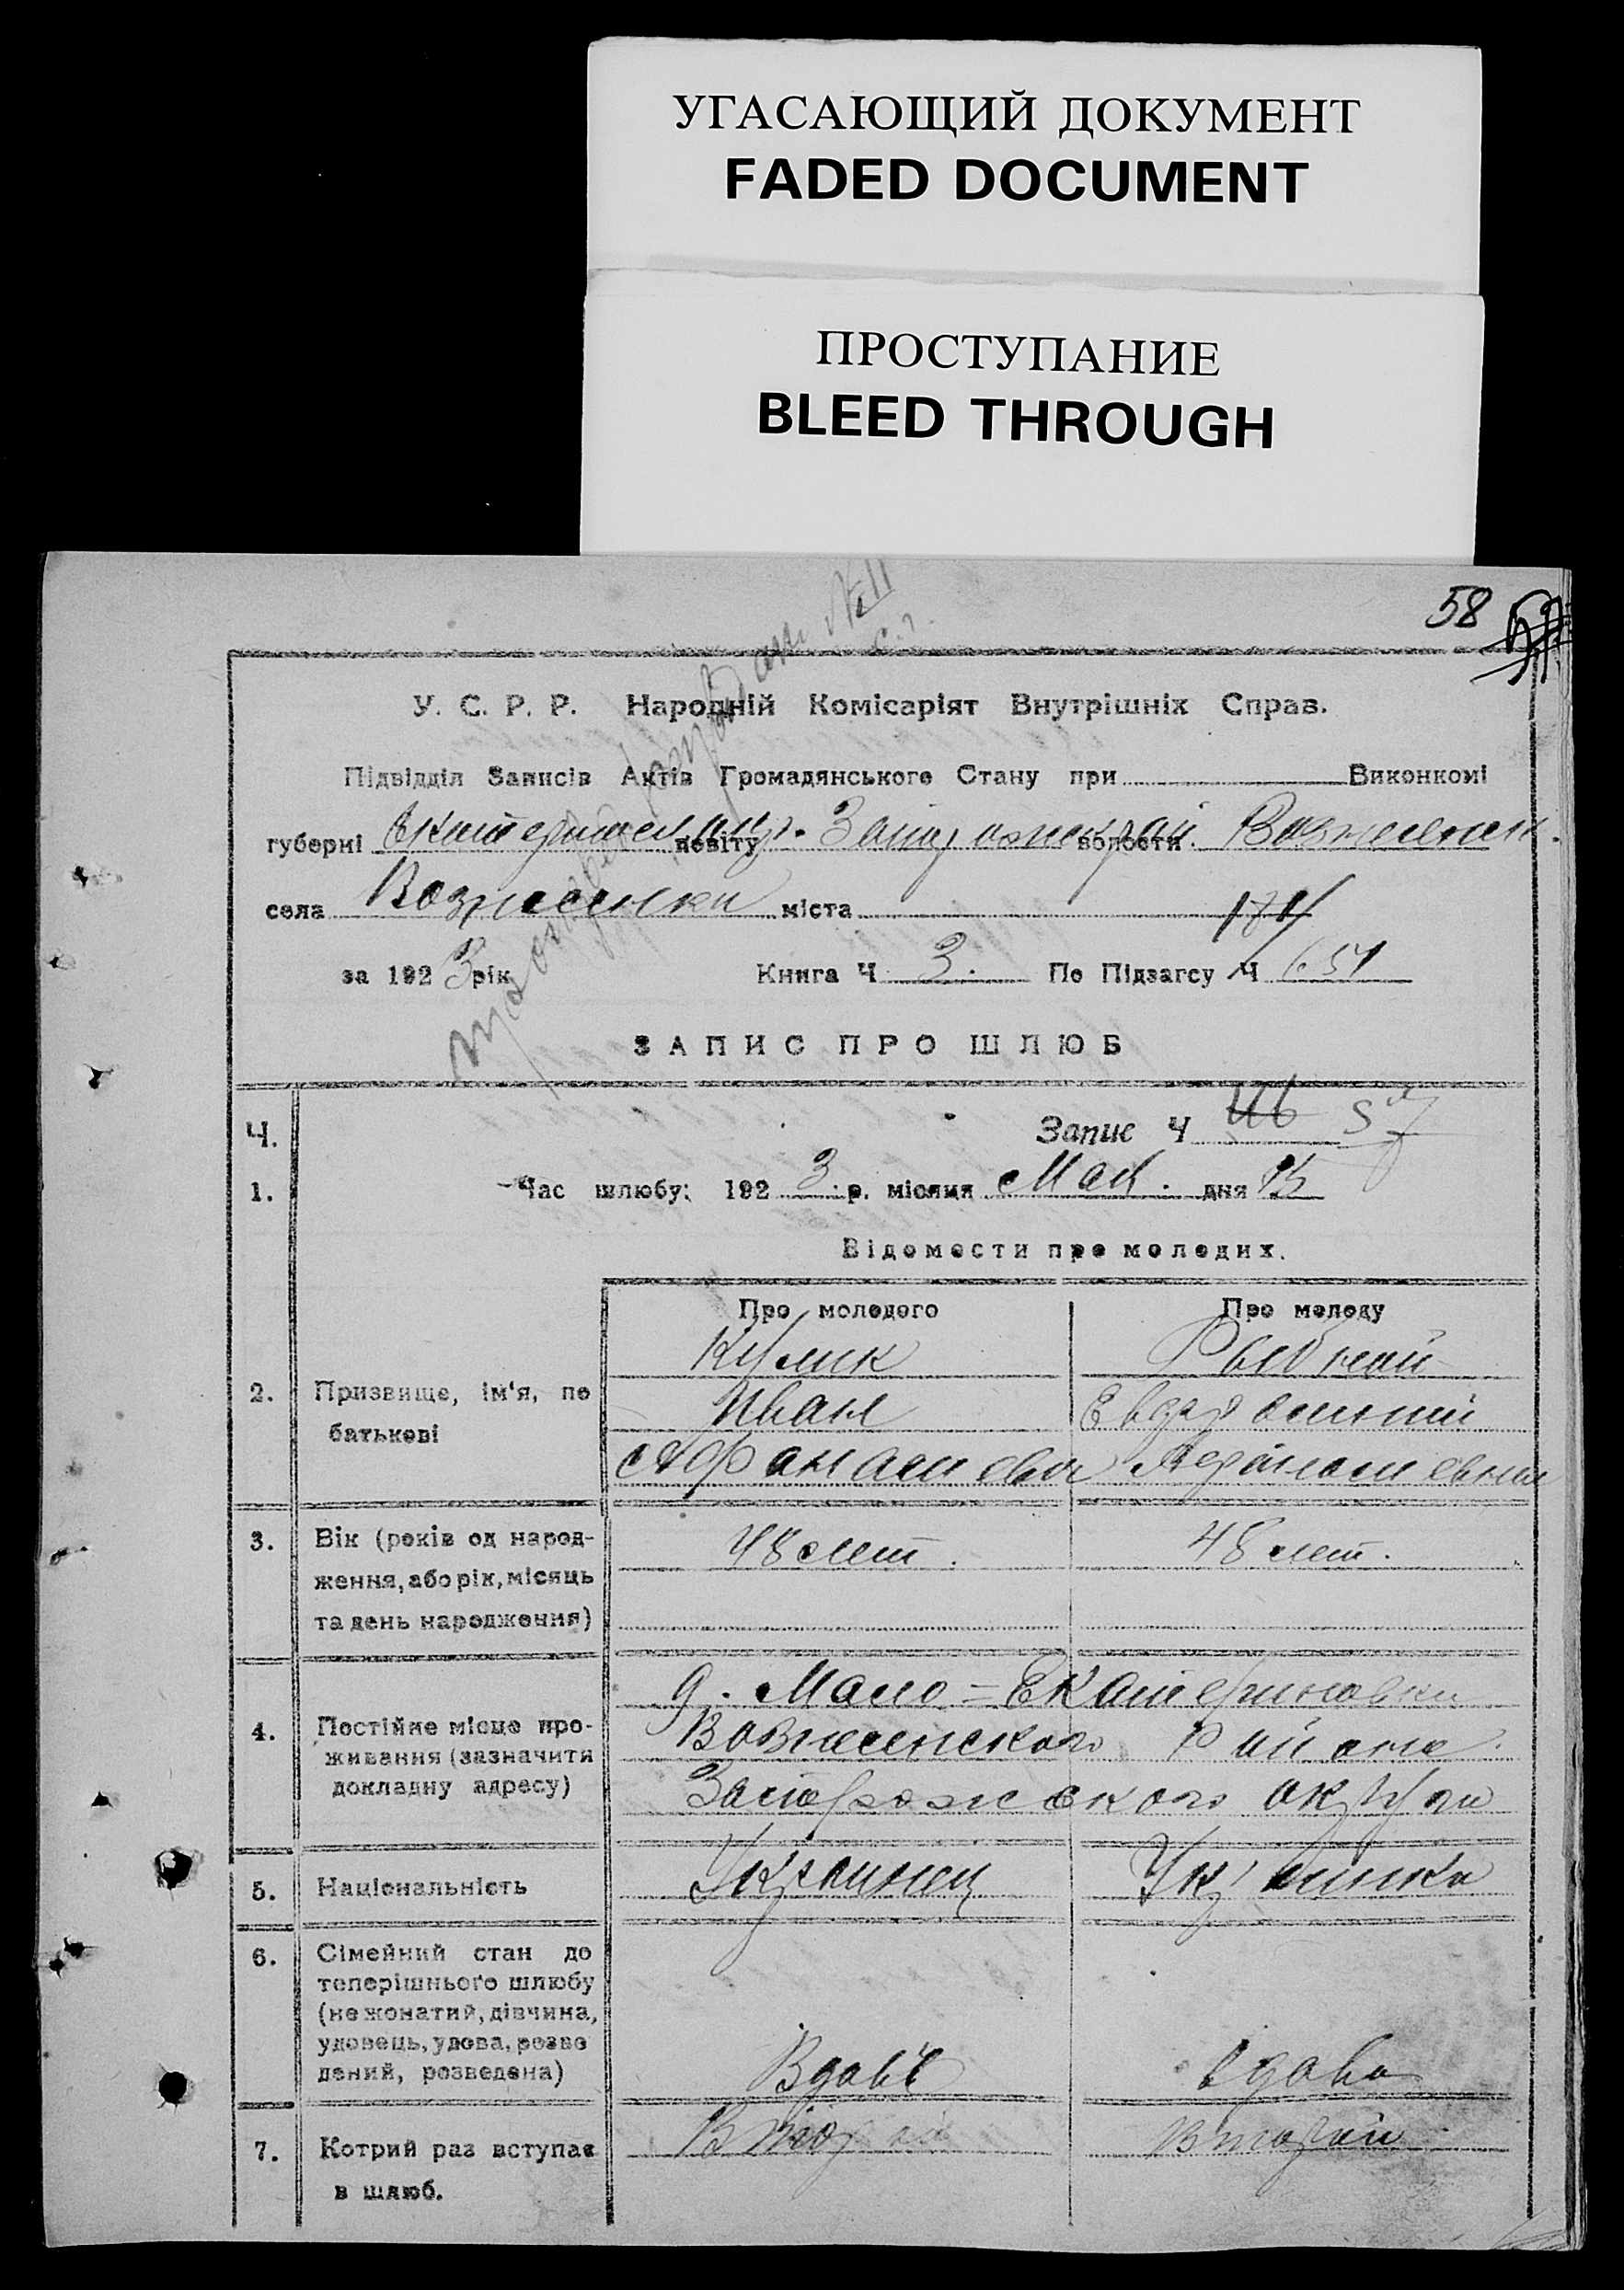 УГАСАЮЩИЙ ДОКУМЕНТ
FADED DOCUMENT
ПРОСТУПАНИЕ
BLEED THROUGH
58
У. С. Р. Р. Народній Комісаріят Внутрішніх Справ.
Підвідділ Записів Актів Громадянського Стану при Виконкомі
губерні повіту волости
села Вознесенки міста
за 1923 рік Книга Ч 3. По Підзагсу Ч 651
ЗАПИС ПРО ШЛЮБ
Ч. Запис Ч
1. Час шлюбу: 1923 р. місяця Мая. дня
Відомости про молодих.
Про молодого Про молоду
Кулик
2. Призвище, ім'я, по Иван
батькові
3. Вік (років од народ- 48 лет. 48 лет.
ження, або рік, місяць
та день народження)
д. Мало=Екатериновки
4. Постійне місце про- Вознесенского Района
живання (зазначити
докладну адресу) Запорожского округи
5. Національність Украинец Украинка
6. Сімейний стан до
теперішнього шлюбу
(не жонатий, дівчина,
удовець, удова, розве
дений, розведена) вдова
7. Котрий раз вступає Второй Второй
в шлюб.